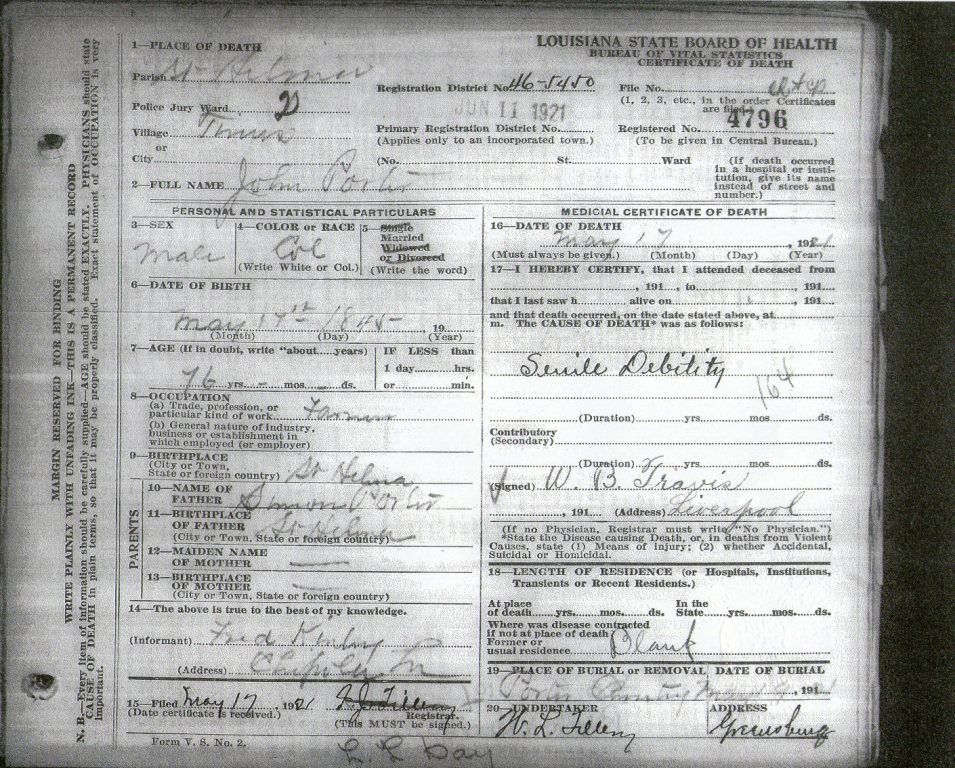 MARGIN RESERVED FOR BINDING
WRITE PLAINLY WITH UNFADING INK—THIS IS A PERMANENT RECORD
N. B.—Every item of information should be carefully supplied—AGE should be stated EXACTLY. PHYSICIANS should state
CAUSE OF DEATH in plain terms, so that it may be properly classified. Exact statement of OCCUPATION is very
important.
LOUISIANA STATE BOARD OF HEALTH
BUREAU OF VITAL STATISTICS
CERTIFICATE OF DEATH
1—PLACE OF DEATH
Parish St Helena
Police Jury Ward
Village
or
City
Registration District No. 46-5450
JUN 11 1921
Primary Registration District No.
(Applies only to an incorporated town.)
(No. St. Ward
File No.
(1, 2, 3, etc., in the order Certificates
are filed.)
4796
Registered No.
(To be given in Central Bureau.)
(If death occurred
in a hospital or insti-
tution, give its name
instead of street and
number.)
2—FULL NAME John Porter
PERSONAL AND STATISTICAL PARTICULARS
3—SEX
Male
4—COLOR or RACE
Col
(Write White or Col.)
5—Single
Married
Widowed
or Divorced
(Write the word)
6—DATE OF BIRTH
May 17th 1845 19
(Month) (Day) (Year)
7—AGE (If in doubt, write "about.....years)
76 yrs. – mos. – ds.
IF LESS than
1 day hrs.
or min.
8—OCCUPATION
(a) Trade, profession, or
particular kind of work Farmer
(b) General nature of industry,
business or establishment in
which employed (or employer)
9—BIRTHPLACE
(City or Town,
State or foreign country) St Helena
PARENTS
10—NAME OF
FATHER Simon Porter
11—BIRTHPLACE
OF FATHER St Helena
(City or Town, State or foreign country)
12—MAIDEN NAME
OF MOTHER
13—BIRTHPLACE
OF MOTHER
(City or Town, State or foreign country)
14—The above is true to the best of my knowledge.
(Informant) Fred Kinby
(Address) Chipola La
15—Filed May 17, 1921
(Date certificate is received.)
Registrar.
(This MUST be signed.)
Form V. S. No. 2.
L. L. Day
MEDICIAL CERTIFICATE OF DEATH
16—DATE OF DEATH
May 17, 1921
(Must always be given.) (Month) (Day) (Year)
17—I HEREBY CERTIFY, that I attended deceased from
, 191 , to , 191
that I last saw h alive on , 191
and that death occurred, on the date stated above, at
m. The CAUSE OF DEATH* was as follows:
Senile Debility
164
(Duration) yrs. mos. ds.
Contributory
(Secondary)
(Duration) yrs. mos. ds.
(Signed) W. B. Travis
, 191 (Address) Liverpool
(If no Physician, Registrar must write "No Physician.")
*State the Disease causing Death, or, in deaths from Violent
Causes, state (1) Means of injury; (2) whether Accidental,
Suicidal or Homicidal.
18—LENGTH OF RESIDENCE (or Hospitals, Institutions,
Transients or Recent Residents.)
At place
of death yrs. mos. ds.
In the
State yrs. mos. ds.
Where was disease contracted
if not at place of death
Former or
usual residence Blank
19—PLACE OF BURIAL or REMOVAL DATE OF BURIAL
Porter , 191
20—UNDERTAKER ADDRESS
W. L. Greensburg